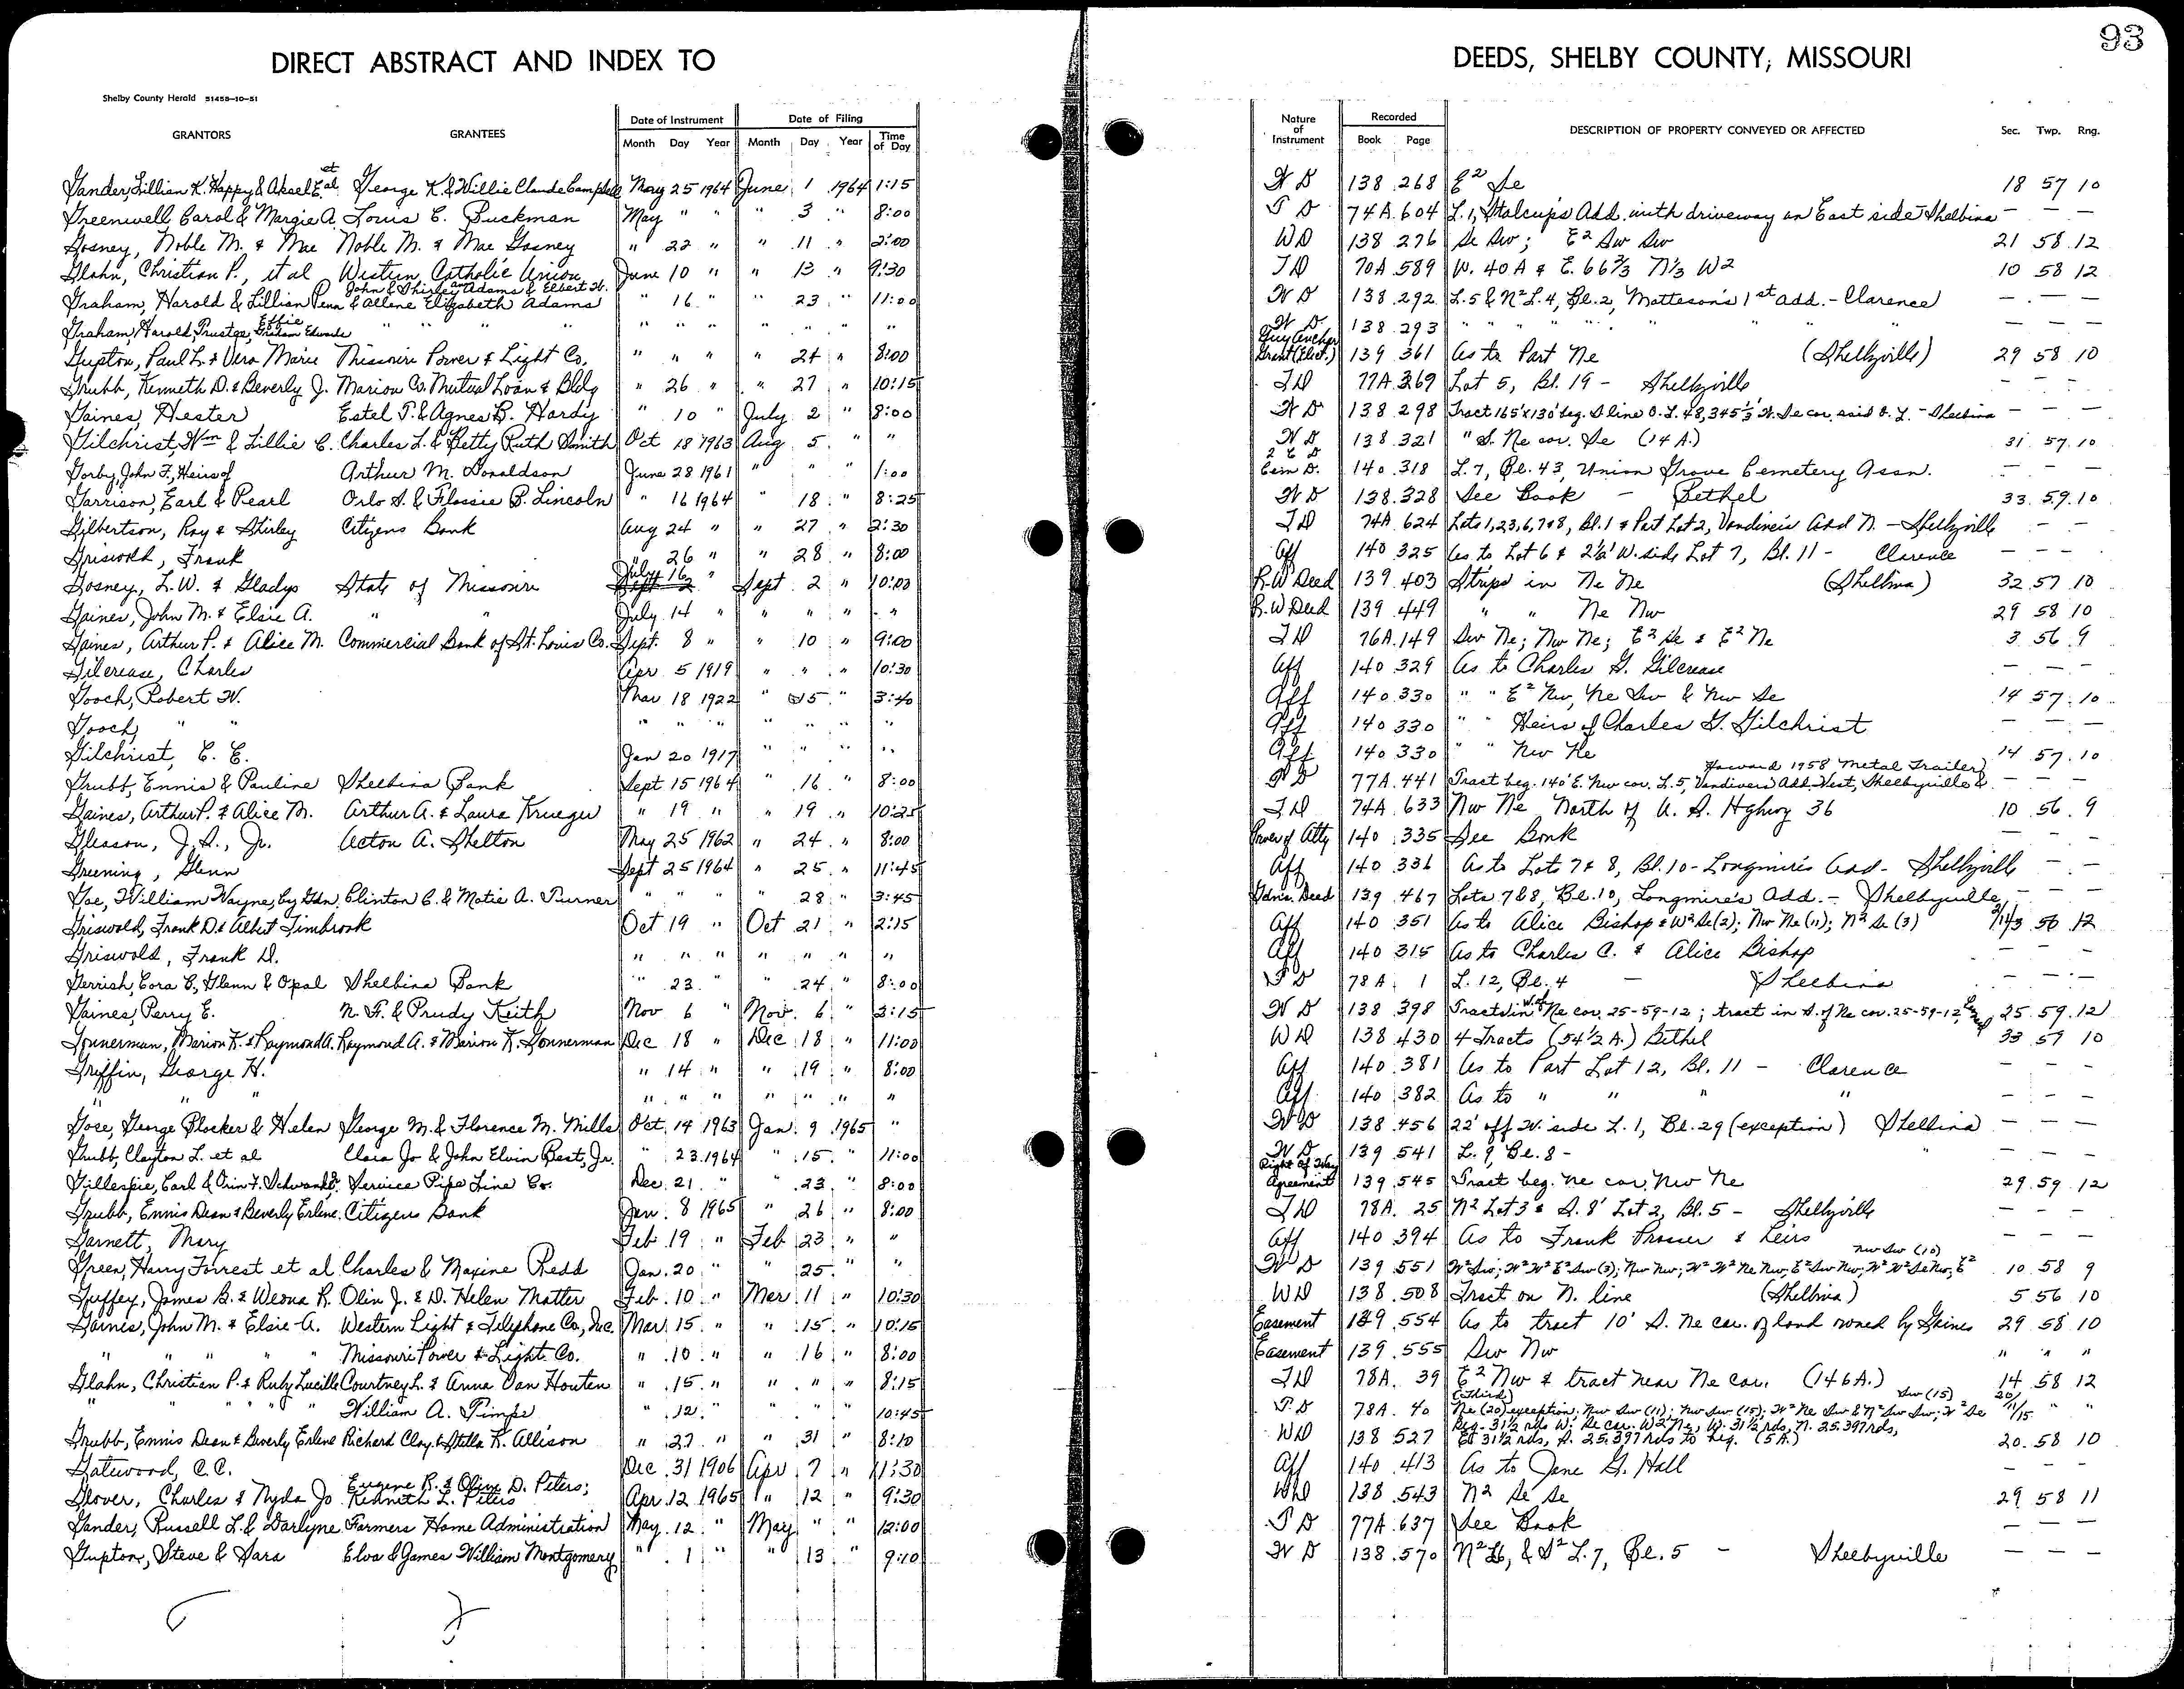 93
DIRECT ABSTRACT AND INDEX TO DEEDS, SHELBY COUNTY, MISSOURI
Shelby County Herald 51458-10-51
GRANTORS GRANTEES Date of Instrument Month Day Year Date of Filing Month Day Year Time of Day Nature of Instrument Recorded Book Page DESCRIPTION OF PROPERTY CONVEYED OR AFFECTED Sec. Twp. Rng.
Gander, Lillian K. Happy & Aksel E. et al George K. & Willie Claude Campbell May 25 1964 June 1 1964 1:15 W D 138 268 E² Se 18 57 10
Greenwell Carol & Margie A. Louis E. Buckman May " " " 3 " 8:00 T D 74A 604 L. 1, Stalcup's Add. with driveway on East side Shelbina — — —
Gosney, Noble M. & Mae Noble M. & Mae Gosney " 22 " " 11 " 2:00 WD 138 276 Se Sw; E² Sw Sw 21 58 12
Glahn, Christian P., et al Western Catholic Union June 10 " " 13 " 9:30 TD 70A 589 W. 40 A & E. 66 2/3 N 1/3 W2 10 58 12
Graham, Harold & Lillian John & Shirley Ann Adams & Elbert W. Penn & Allene Elizabeth Adams " 16 " " 23 " 11:00 W D 138 292 L. 5 & N² L. 4, Bl. 2, Matteson's 1st Add. - Clarence — — —
Graham, Harold, Trustee, Effie Graham Edwards " " " " " " " " " " W D 138 293 " " " " " " " — — —
Gupton, Paul L. & Vera Marie Missouri Power & Light Co. " " " " 24 " 8:00 Guy Anchor Grant (Elect.) 139 361 As to Part Ne (Shelbyville) 29 58 10
Grubb, Kenneth D. & Beverly J. Marion Co. Mutual Loan & Bldg " 26 " " 27 " 10:15 TD 77A 369 Lot 5, Bl. 19 - Shelbyville — — —
Gaines, Hester Estel T. & Agnes B. Hardy " 10 " July 2 " 8:00 W D 138 298 Tract 165'x130' beg. S line O. L. 48, 345 1/3' W. Se cor. said O. L. - Shelbina — — —
Gilchrist, Wm & Lillie C. Charles L. & Betty Ruth Smith Oct 18 1963 Aug 5 " " W D 138 321 " S. Ne cor. Se (14 A.) 31 57 10
Gorby, John F., Heirs of Arthur M. Donaldson June 28 1961 " " " 1:00 Cem D. 140 318 L. 7, Bl. 43, Union Grove Cemetery Assn. — — —
Garrison, Earl & Pearl Orlo S. & Flossie B. Lincoln " 16 1964 " 18 " 8:25 W D 138 328 See Book - Bethel 33 59 10
Gilbertson, Ray & Shirley Citizens Bank Aug 24 " " 27 " 2:30 TD 74A 624 Lots 1,2,3,6,7&8, Bl. 1 & Part Lot 2, Vandiver's Add N. - Shelbyville — —
Griswold, Frank 26 " " 28 " 8:00 Aff 140 325 As to Lot 6 & 2½' W. side Lot 7, Bl. 11 - Clarence — — —
Gosney, L. W. & Gladys State of Missouri July 16 " Sept 2 " 10:00 R. W Deed 139 403 Strips in Ne Ne (Shelbina) 32 57 10
Gaines, John M. & Elsie A. " " July 14 " " " " " R. W Deed 139 449 " " Ne Nw 29 58 10
Gaines, Arthur P. & Alice M. Commercial Bank of St. Louis Co. Sept. 8 " " 10 " 9:00 TD 76A 149 Sw Ne; Nw Ne; E² Se & E² Ne 3 56 9
Gilcrease, Charles Apr 5 1919 " " " 10:30 Aff 140 329 As to Charles G. Gilcrease — — —
Gooch, Robert W. Mar 18 1922 " 15 " 3:40 Aff 140 330 " " E² Nw, Ne Sw & Nw Se 14 57 10
Gooch, " " " " " " " " " Aff 140 330 " " Heirs of Charles G. Gilchrist — — —
Gilchrist, C. E. Jan 20 1917 " " " " Aff 140 330 " " Nw Ne 14 57 10
Grubb, Ennis & Pauline Shelbina Bank Sept 15 1964 " 16 " 8:00 T D 77A 441 Tract beg. 140' E. Nw cor. L. 5, Vandivers Add. West, Shelbyville & Howard 1958 Metal Trailer — — —
Gaines, Arthur P. & Alice M. Arthur A. & Laura Krueger " 19 " " 19 " 10:25 TD 74A 633 Nw Ne North of U. S. Highway 36 10 56 9
Gleason, J. S., Jr. Acton A. Shelton May 25 1962 " 24 " 8:00 Power of Atty 140 335 See Book — — —
Greening, Glenn Sept 25 1964 " 25 " 11:45 Aff 140 336 As to Lots 7 & 8, Bl. 10 - Longmire's Add - Shelbyville — —
Goe, William Wayne, by Gdn. Clinton C. & Matie A. Turner " " " " 28 " 3:45 Gdn's. Deed 139 467 Lots 7&8, Bl. 10, Longmire's Add. - Shelbyville — — —
Griswold, Frank D. & Albert Timbrook Oct 19 " Oct 21 " 2:15 Aff 140 351 As to Alice Bishop & W² Se (2); Nw Ne (11); N² Se (3) 2/11/3 56 12
Griswold, Frank D. " " " " " " " Aff 140 315 As to Charles C. & Alice Bishop — — —
Gerrish, Cora C., Glenn & Opal Shelbina Bank " 23 " " 24 " 8:00 T D 78A 1 L. 12, Bl. 4 — Shelbina — — —
Gaines, Perry E. N. F. & Prudy Keith Nov 6 " Nov. 6 " 3:15 W D 138 398 Tracts in W. of Ne cor. 25-59-12; tract in S. of Ne cor. 25-59-12, 25 59 12
Gonnerman, Marion K. & Raymond A. Raymond A. & Marion K. Gonnerman Dec 18 " Dec 18 " 11:00 WD 138 430 4 Tracts (54½ A.) Bethel 33 57 10
Griffin, George H. " 14 " " 19 " 8:00 Aff 140 381 As to Part Lot 12, Bl. 11 - Clarence — — —
" " " " " " " " " " Aff 140 382 As to " " " " — — —
Gose, George Blocker & Helen George M. & Florence M. Mills Oct. 14 1963 Jan. 9 1965 " W D 138 456 22' off W. side L. 1, Bl. 29 (exception) Shelbina — — —
Grubb, Clayton L. et al Clara Jo & John Elvin Best, Jr. " 23 1964 " 15 " 11:00 W D 139 541 L. 9, Bl. 8 - " — — —
Gillespie, Carl & Orin F. Schwanke Service Pipe Line Co. Dec. 21 " " 23 " 8:00 Right Of Way Agreement 139 545 Tract beg. Ne cor. Nw Ne 29 59 12
Grubb, Ennis Dean & Beverly Erlene Citizens Bank Jan. 8 1965 " 26 " 8:00 TD 78A 25 N² Lot 3 & S. 8' Lot 2, Bl. 5 - Shelbyville — — —
Garnett, Mary Feb 19 " Feb 23 " " Aff 140 394 As to Frank Prosser & heirs — — —
Green, Harry Forrest et al Charles & Maxine Redd Jan. 20 " " 25 " " W D 139 551 W² Sw; W² W² E² Sw (3); Nw Nw; W² W² Ne Nw; E² Sw Nw; W² W² Se Nw; E² Nw Sw (10) 10 58 9
Guffey, James B. & Weona R. Olin J. & D. Helen Motter Feb. 10 " Mar 11 " 10:30 WD 138 508 Tract on N. line (Shelbina) 5 56 10
Gaines, John M. & Elsie A. Western Light & Telephone Co., Inc. Mar. 15 " " 15 " 10:15 Easement 139 554 As to tract 10' S. Ne cor. of land owned by Gaines 29 58 10
" " " " " Missouri Power & Light Co. " 10 " " 16 " 8:00 Easement 139 555 Sw Nw " " "
Glahn, Christian P. & Ruby Lucille Courtney L. & Anna Van Houten " 15 " " " " 8:15 TD 78A 39 E² Nw & tract near Ne cor. (146 A.) 14 58 12
" " " " " William A. Timpe " 12 " " " " 10:45 T. D 78A 40 (Third) Ne (20) exception; Nw Sw (11); Nw Sw (15); W² Ne Sw & N² Sw Sw; W² Se Sw (15) 20/11/15 " "
Grubb, Ennis Dean & Beverly Erlene Richard Clay & Stella K. Allison " 27 " " 31 " 8:10 WD 138 527 Beg. 31½ rds W. Se cor. W2 Ne, W. 31½ rds, N. 25.397 rds, E. 31½ rds, S. 25.397 rds to beg. (5 A.) 20 58 10
Gatewood, C. C. Dec 31 1906 Apr 7 " 11:30 Aff 140 413 As to Jane G. Hall — — —
Glover, Charles & Nyda Jo Eugene R. & Oliva D. Peters; Kenneth L. Peters Apr. 12 1965 " 12 " 9:30 WD 138 543 N² Se Se 29 58 11
Gander, Russell L. & Darlyne Farmers Home Administration May 12 " May " " 12:00 T D 77A 637 See Book — — —
Gupton, Steve & Sara Elva & James William Montgomery " 1 " " 13 " 9:10 W D 138 570 N² L6, & S² L. 7, Bl. 5 - Shelbyville — — —